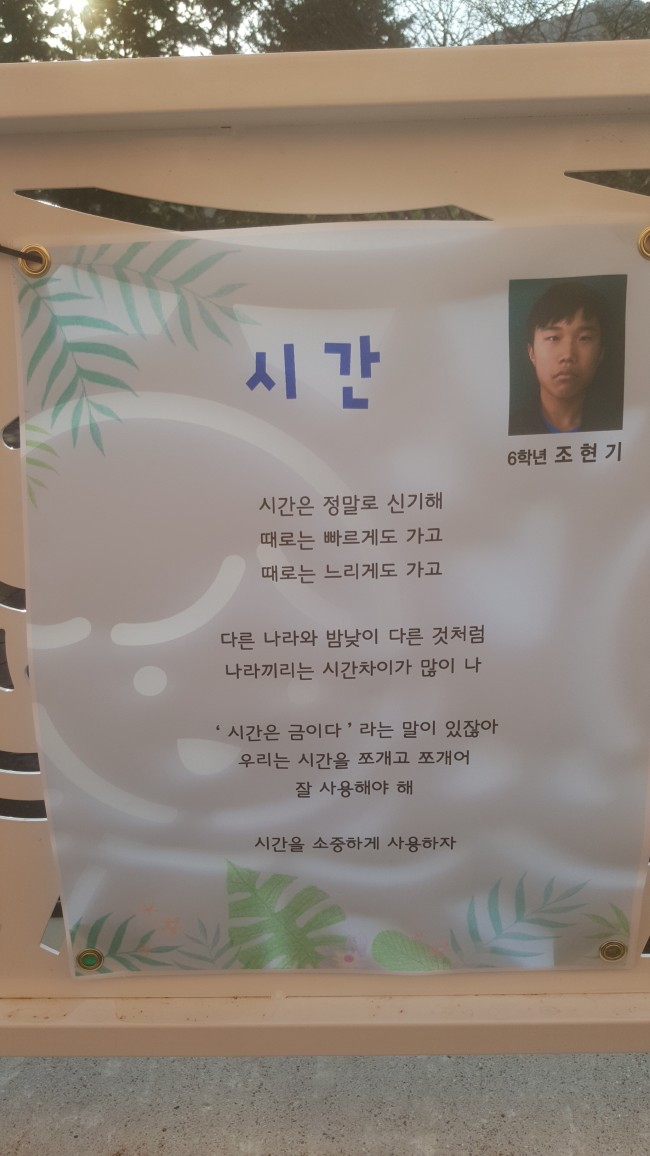 시간
6학년 조현기
시간은 정말로 신기해
때로는 빠르게도 가고
때로는 느리게도 가고
다른 나라와 밤낮이 다른 것처럼
나라끼리는 시간차이가 많이 나
‘시간은 금이다’라는 말이 있잖아
우리는 시간을 쪼개고 쪼개어
잘 사용해야 해
시간을 소중하게 사용하자